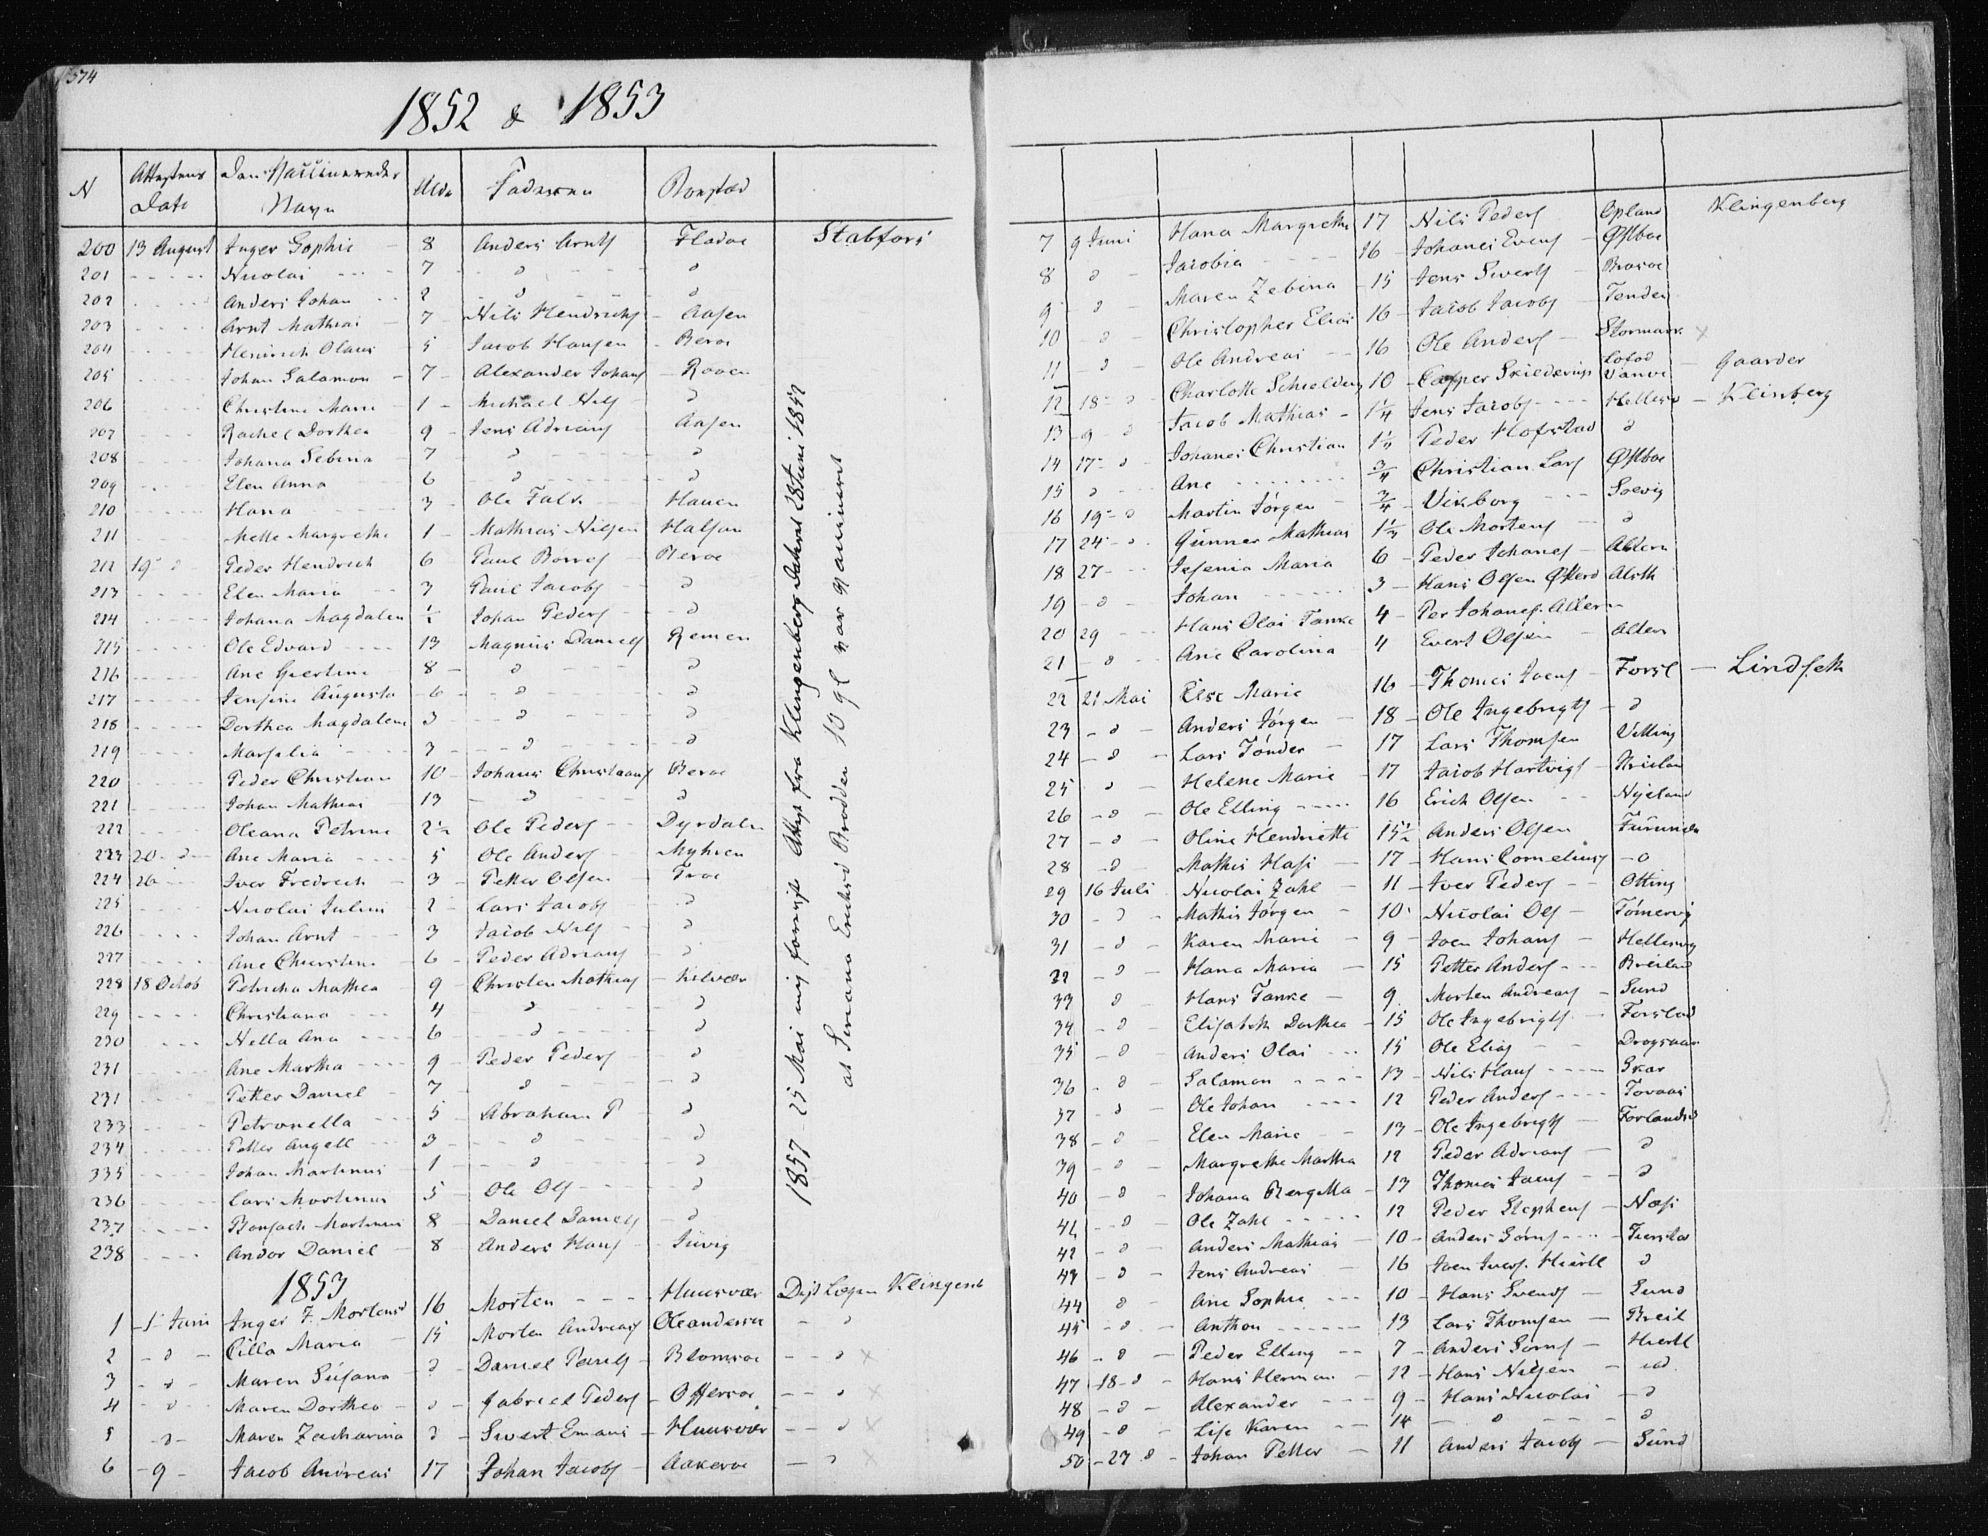 574
1852 & 1853
N Attestens Date Den Vaccineredes Navn Alder Faderen Bopsted
200 13 August Inger Sophie - 8 Anders Arntz Fladøe Stabfors
201 - - - Nicolai - - - 7 - d - - d
202 - - - Anders Johan - - 2 - d - - d
203 - - - Arnt Mathias - 7 - Nils Hendrichs - Aasen
204 - - - Henrich Olaus - 5 Jacob Hansen - Berøe
205 - - - Johan Salamon - 7 - Alexander Johans - Raaen
206 - - - Christine Marie - 1 - Michael Nils - d
207 - - - Rachel Dorthea - 9 - Jens Adrians - Aasen
208 - - - Johana Sebina - 7 - d - - d
209 - - - Elen Anna 6 - d - - d
210 - - - Hana 3 - Ole Falk - Hauen
211 - - - Mette Margrethe 1 - Mathias Nilsen Halsen
212 19 d Peder Hendrich 6 Paul Børres - Berøe
213 - - - Elen Maria - - 3 Paul Jacobs - - d
214 - - - Johana Magdalena ½ Johan Peders - - d
315 - - - Ole Edvard - - - 13 Magnus Daniels Remen
216 - - - Ane Giertine - 8 - d - - d
217 - - - Jensine Augusta - 6 - d - - d
218 - - - Dorthea Magdalena 3 - - d - - d
219 - - - Marselia - - 3 - - d - - d
220 - - - Peder Christian 10 - Johans Christians Berøe
221 - - - Johan Mathias - 13 - d - - d
222 - - - Oleana Petrine 2½ Ole Peders - - Dyrdalen
223 20 - d - Ane Maria - - - 5 Ole Anders - Myhren
224 26 - - Iver Fredrech - 3 - Petter Olsen - Troe
225 - - - Nicolai Julius - 2 - Lars Jacobs - d
226 - - - Johan Arnt - - 3 Jacob Nils - - d
227 - - - Ane Chierstine - 6 - Peder Adrians - d
228 18 Octob Petricha Mathea - 9 - Christen Mathias - Kilvær
229 - - - Christiana - - 4 - d - - d
230 - - - Hella Ana - - 6 - d - - d
231 - - - Ane Martha - - - 9 - Peder Peders - - d
231 - - - Petter Daniel - 7 - d - - d
233 - - - Petronella - - - 5 - Abraham P - d
234 - - - Petter Angell - - 3 - - d - - d
335 - - - Johan Martinus - 1 - - d - - d
236 - - - Lars Mortinus - 5 - Ole Ols - - - d
237 - - - Martinus 8 - Daniel Daniels - d
238 - - - Andor Daniel - 8 - Anders Hans - Juvig
1853
1 - 1 Juni Inger Z. Mortensd 16 Morten - - - Huusvær Dist Lægen Klingenb
2 - d - Cilla Maria - 15 Morten Andreas Oleandersa - d
3 - d - Maren Susana - d - Daniel Pauls - Blomsøe - - d x
4 - d - Maren Dorthea - d - Gabriel Peders - Offersøe - - d x
5 - d - Maren Zacharina d - Sivert Emans - Huusvær - - d x
6 - 9 - Jacob Andreas 17 Johan Jacobs - Aakerøe - d x
1857 25 Mai mig forevist Attest fra Klingenberg dateret 28 Juni 1852
at Seriana Erichsd Brodden 10 gl var vaccineret
7 9 Juni Hana Margrethe 17 Nils Peders Opland Klingenberg
8 d - Jacobia - - - 16 - Johanes Evens - Østbøe
9 - d - Maren Zebina - 15 Jens Siverts - Brasøe
10 d - Christopher Elias 16 - Jacob Jacobs - Tenden
11 - d - Ole Andreas - - 16 Ole Anders - Stormark x
12 18 - d - Charlotte Schielderup 10 - Casper Skielderup Lofod Vanve - Gaarder
13 - 9 - d Jacob Mathias - 1¼ Jens Jacobs - - - Hellesv - Klinberg
14 17 - d - Johanes Christian 1½ Peder Hofstad d
15 d - - Ane - - - - ¾ Christian Lars Østbøe
16 19 - d - Martin Jørgen - ¾ - Vikborg - - - Soevig
17 24 - d - Gunner Mathias 1½ Ole Mortens - - d
18 27 - - - Jesenia Maria 6 - Peder Johanes - Altern
19 - d - Johan - - - 3 - Hans Olsen Østerd Alsth
20 29 - - - Hans Olai Tanke 4 - Per Johanes. Altern -
21 - d - - Ane Carolina - 4 Evert Olsen - Altern
22 21 Mai Else Marie 16 - Thomes Joens - Forsl - Lindseth
23 - d - Anders Jørgen - 18 - Ole Ingebrigts - d
24 - d - Lars Tønder - 17 Lars Thomsen Vitting
25 d - Helene Marie - 17 Jacob Hartvigs -
26 - d - Ole Elling - - - 16 Erich Olsen - - Nyeland
27 - d - Oline Hendriette 15½ Anders Olsen
28 - d - Mathis Hass - 17 - Hans Cornelius - d
29 16 Juli Nicolai Zahl - 11 - Iver Peders - - Otting
30 - d - Mathis Jørgen - 10 - Nicolai Ols - Tømervig
31 - d - Karen Marie - 9 - Joen Johans - Hellesvig
32 - d - Hana Maria - 15 Petter Anders - - - Breiland
33 d - Hans Tanke - 9 Morten Andreas - Sund
34 - d - Elisabeth Dorthea - 15 Ole Ingebrigts - Forslad
35 - d - Anders Olai - - - 15 Ole Elias - -
36 - d - Salamon - - - - 13 - Nils Hans - - - - Skar
37 - d - Ole Johan - - - - 12 Peder Anders - - - - Tovaas
38 - d - Elen Marie - - 13 - Ole Ingebrigts - Forlandsd
39 - d - Margrethe Martha 12 Peder Adrians - d
40 - d - Johana Bergitta - 13 Thomes Joens - d
41 - d - Ole Zahl - - - - 12 Peder Stephens - Næss
42 - d - Anders Mathias - 10 - Anders Sørns - - - -
43 - d - Jens Andreas - 16 Joen Ivers. Hiertl d
44 d - Ane Sophie - - - 10 - Hans Svends - Sund
45 - d - Anthon - - - - 13 Lars Thomsen - Breil
46 - d - Peder Elling - - 7 - Anders Sørns - Hiertl
47 - 18 - d - Hans Herman - 12 - Hans Nilsen - id
48 - d - Alexander - - - 9 - Hans Nicolai - d
49 - d - Lise Karen - - 14 - d - - - d
50 - 27 d - Johan Petter - 11 Anders Jacobs - Sund